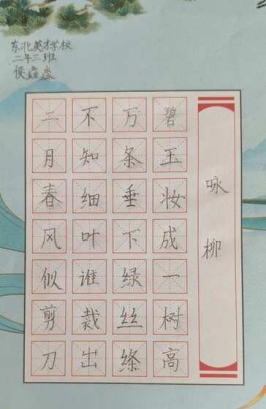 东北英才学校
二年三班
咏柳
碧玉妆成一树高
万条垂下绿丝绦
不知细叶谁裁出
二月春风似剪刀